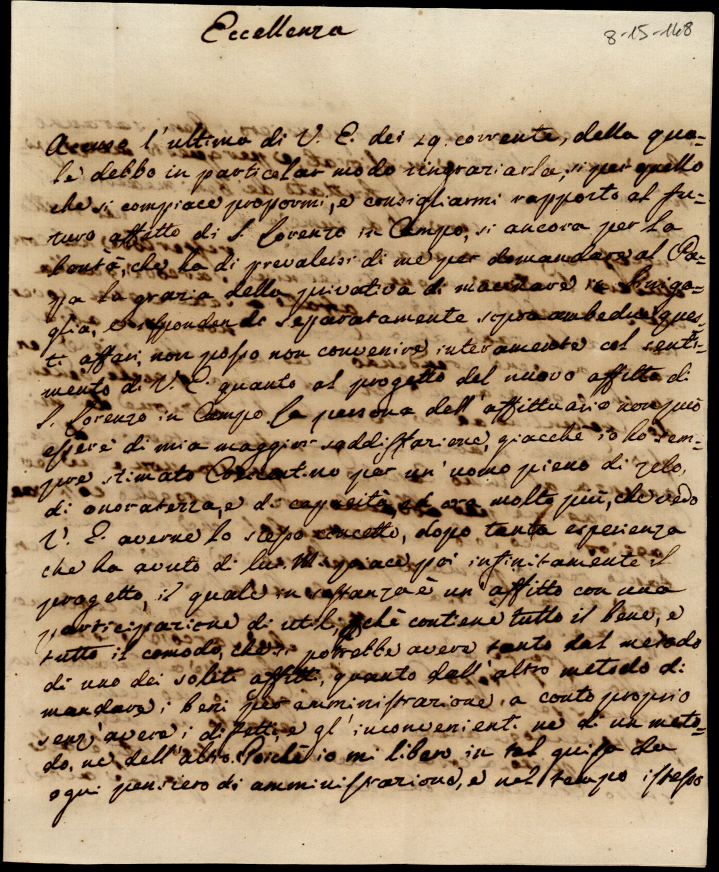 Eccellenza
8-15-148
Accuso l'ultima di V. E. dei 29. corrente, della qua=
le debbo in particolar modo ringraziarla, si per quello
che si compiace propormi, e consigliarmi rapporto al fu=
turo affitto di S. Lorenzo in Campo, si ancora per la
bontà, che ha di prevalersi di me per domandare al Pa=
pa la grazia della privativa di macinare in Siniga=
glia, e rispondendo separatamente sopra ambedue ques=
ti affari non posso non convenire interamente col senti=
mento di V. E. quanto al progetto del nuovo affitto di
S. Lorenzo in Campo. La persona dell'affittuario non può
essere di mia maggior soddisfazione, giacchè io ho sem=
pre stimato per un'uomo pieno di zelo,
di onoratezza, e di capacità ed ora molto più, che vedo
V. E. averne lo stesso concetto, dopo tanta esperienza
che ha avuto di lui. Mi piace poi infinitamente il
progetto, il quale in sostanza è un'affitto con una
participazione di utili, chè contiene tutto il bene, e
tutto il comodo, che si potrebbe avere tanto dal metodo
di uno dei soliti affitti, quanto dall'altro metodo di
mandare i beni per amministrazione a conto proprio
senz'avere i difetti, e gl'inconvenienti ne di un meto=
do, ne dell'altro. Perchè io mi libero in tal guisa da
ogni pensiero di amministrazione, e nel tempo istesso